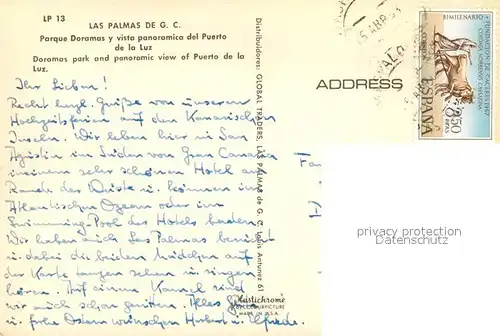 LP 13
LAS PALMAS DE G. C.
Parque Doramas y vista panoramica del Puerto
de la Luz
Doramas park and panoramic view of Puerto de la
Luz.
Ihr Lieben!
Recht herzl. Grüße von unseren
Hochzeitsferien auf den Kanarischen
Inseln. Wir leben hier in San
Agustin im Süden von Gran Canaria
in einem sehr schönen Hotel am
Rande der Wüste u. können im
Atlantischen Ozean oder im
Swimming-Pool des Hotels baden.
Wir haben auch Las Palmas besucht
u. dabei die beiden Mädchen auf
der Karte tanzen sehen u. singen
hören. Auf einem Kamel sind
wir auch schon geritten. Alles Gute
u. frohe Ostern wünschen Herbert u. Elfriede.
Distribuidores: GLOBAL TRADERS, LAS PALMAS DE G. C. Luis Antunez 61
Plastichrome
BY COLOURPICTURE
MADE IN U.S.A.
ADDRESS
Fam
BIMILENARIO
FUNDACION DE CACERES 1967
COLONIA NORBENSIS CAESARINA
CORREOS
ESPAÑA
3,50
PTAS
PICTURESTOCK
www.picturestock.info